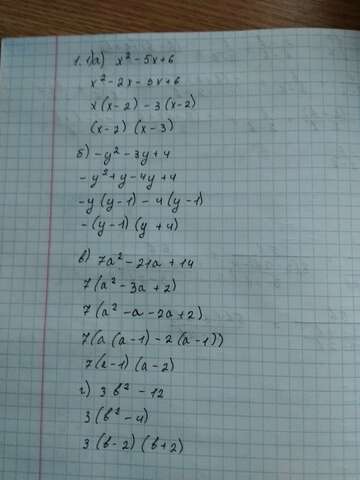 1. 1) а) x² - 5x + 6
x² - 2x - 3x + 6
x (x - 2) - 3 (x - 2)
(x - 2) (x - 3)
б) -y² - 3y + 4
- y² + y - 4y + 4
-y (y - 1) - 4 (y - 1)
- (y - 1) (y + 4)
в) 7a² - 21a + 14
7 (a² - 3a + 2)
7 (a² - a - 2a + 2)
7 (a (a - 1) - 2 (a - 1))
7 (a - 1) (a - 2)
г) 3b² - 12
3 (b² - 4)
3 (b - 2) (b + 2)